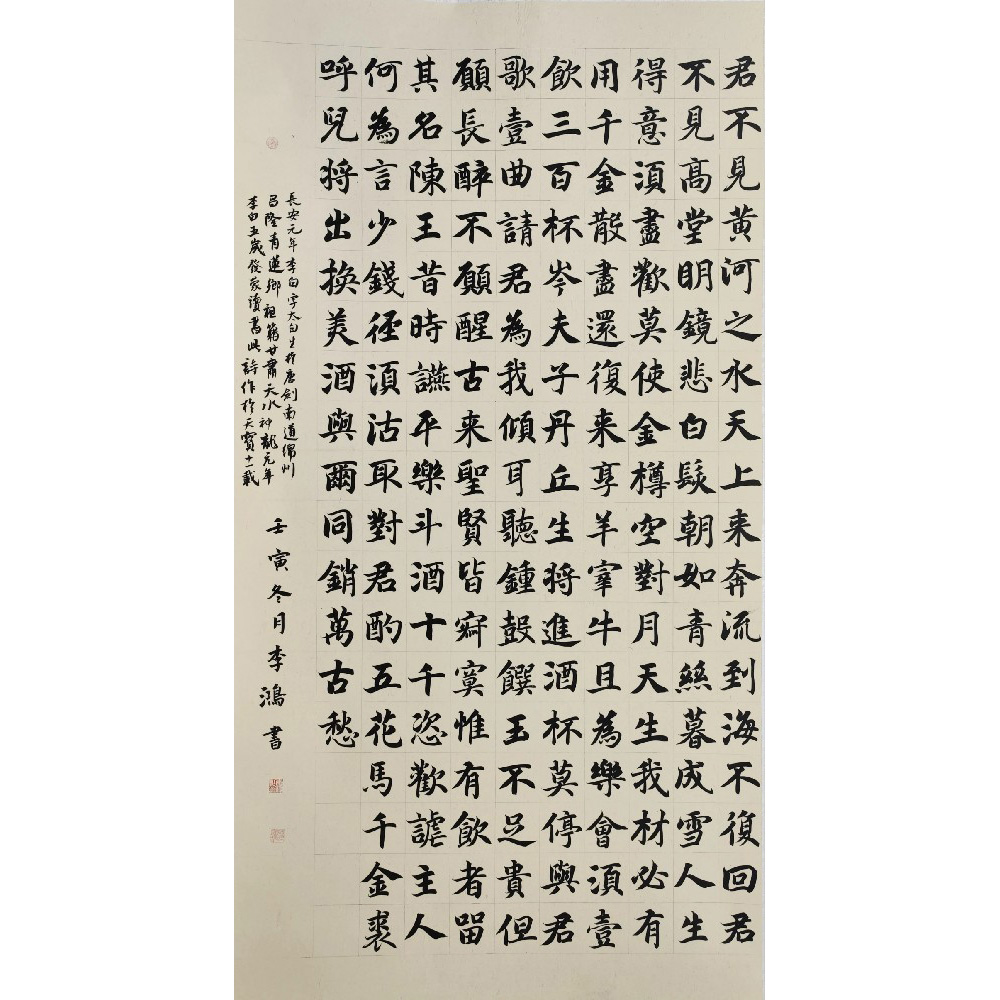 君不見黃河之水天上来奔流到海不復回君
不見高堂明鏡悲白髮朝如青絲暮成雪人生
得意須盡歡莫使金樽空對月天生我材必有
用千金散盡還復来享羊宰牛且為樂會須壹
飲三百杯岑夫子丹丘生將進酒杯莫停與君
歌壹曲請君為我傾耳聽鍾鼓饌玉不足貴但
願長醉不願醒古来聖賢皆寂寞惟有飲者留
其名陳王昔時讌平樂斗酒十千恣歡謔主人
何為言少錢徑須沽取對君酌五花馬千金裘
呼兒將出換美酒與爾同銷萬古愁
長安元年李白字太白生於唐劍南道綿州
昌隆青蓮鄉祖籍甘肅天水神龍元年
李白五歲發蒙讀書此詩作於天寶十一載
壬寅冬月李鴻書